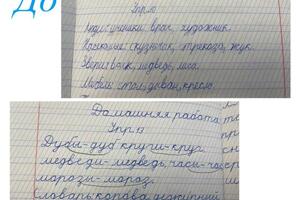 До
Упр.10
Люди: ученики врач, художник.
Насекомые: кузнечик, стрекоза, жук.
Звери: волк, медведь, лиса.
Мебель: стол, диван, кресло.
Домашняя работа
Упр.13
Дубы-дуб круги-круг
медведи-медведь, часы-час
морозы-мороз.
Словарь: корова, дежурный